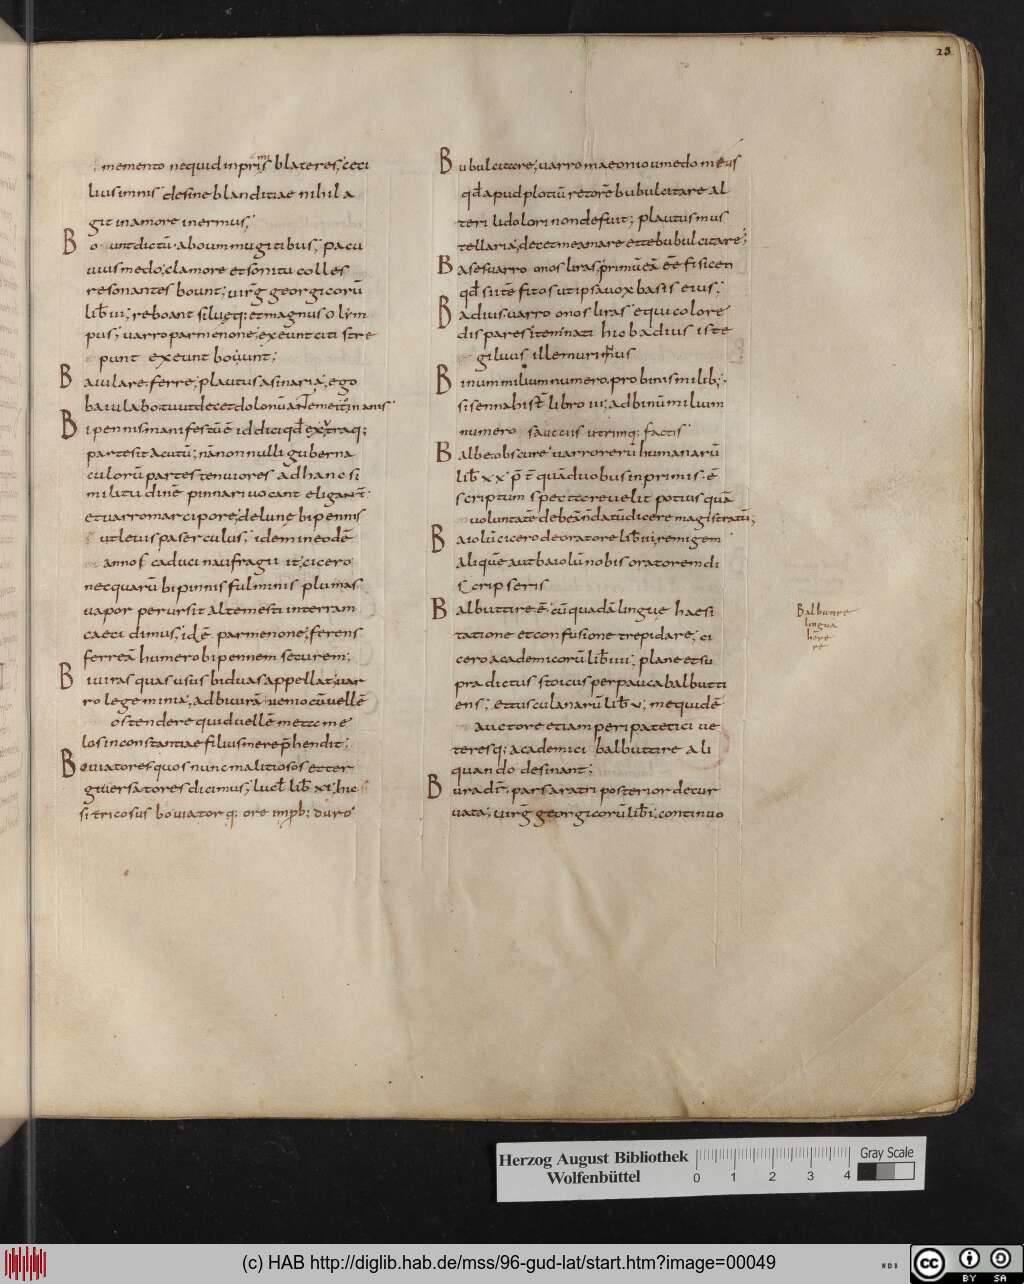 23
memento nequid inprimis blateres; ceci
lius imnis desine blanditiae nihil a
git in amore inermus;
Bount dictū aboum mugitibus; pacu
uius medo; clamore et sonitu colles
resonantes bount; uirḡ georgicorū
lib̄ iii; reboant siluęq; et magnus olym
pus; uarro parmenone; exeunt citi stre
punt exeunt bouunt;
Baiulare ferre; plautus asinaria; ego
baiulabo tu ut decet dominū ante me ito inanis
Bipennis manifestū ē id dici qd̄ ex utraq;
parte sit acutū; nā nonnulli guberna
culorū partes tenuiores ad hanc si
militudinē pinnas uocant eligant̄
et uarro marcipore; de lune bipennis
ut leuis passerculus; idem in eodē
annos caduci naufragii ut; cicero
nec quarū bipinnis fulminis plumas
uapor perussit altem est in terram
caeci dimus; idē parmenone; ferens
ferreā humero bipennem securem;
Biuiras quas usus biduas appellat; uar
ro lege minia; ad biuirā uenio cū uellē
ostendere quid uellē metc me
los inconstantiae filius me rep̄hendit;
Bouiatores quos nunc malitiosos et ter
giuersatores dicimus; lucil̄ lib̄ xi; hic
si tricosus bouiator q; ore imp̄b; duro
Bubulcitare; uarro maeonio umedo meus
qd̄ apud plotiū retorē bubulcitare al
teri ludolori non defuit; plautus mus
tellaria; decet me amare et te bubulcitare;
Bases uarro onos liras; primū eā eē fisicen
qd̄ si itē fitos uti psauox basis eius;
Badius uarro onos liras equi colore
dispares item nati hic badius iste
giluus ille murinus
Binum milium numero pro binis milib;
sisenna hist̄ libro iii; ad binū milium
numero sauccus utrimq; factis
Balbe obscure uarro rerū humanarū
lib̄ xx p̄ t̄ quā duobus in primis ē
scriptum spectare uelit potius quā
uoluntatē de beandatū dicere magistratū;
Baiolū cicero de oratore lib̄ iii; remigem
aliquē aut baiolū nobis oratorem di
scripseris
Balbuttire ē cū quadā linguę haesi
tatione et confusione trepidare; ci
cero academicorū lib̄ iiii; plane et su
pra dictus stoicus perpauca balbutti
ens; et tusculanarū lib̄ v; me quidē
auctore etiam peripatetici ue
teresq; academici balbuttire ali
quando desinant;
Bura dr̄; pars aratri posterior decur
uata; uirḡ georgicorū lib̄ i; continuo
Balbutire
lingua
here
re
Herzog August Bibliothek
Wolfenbüttel
0 1 2 3 4
Gray Scale
(c) HAB http://diglib.hab.de/mss/96-gud-lat/start.htm?image=00049
WDB
CC BY SA